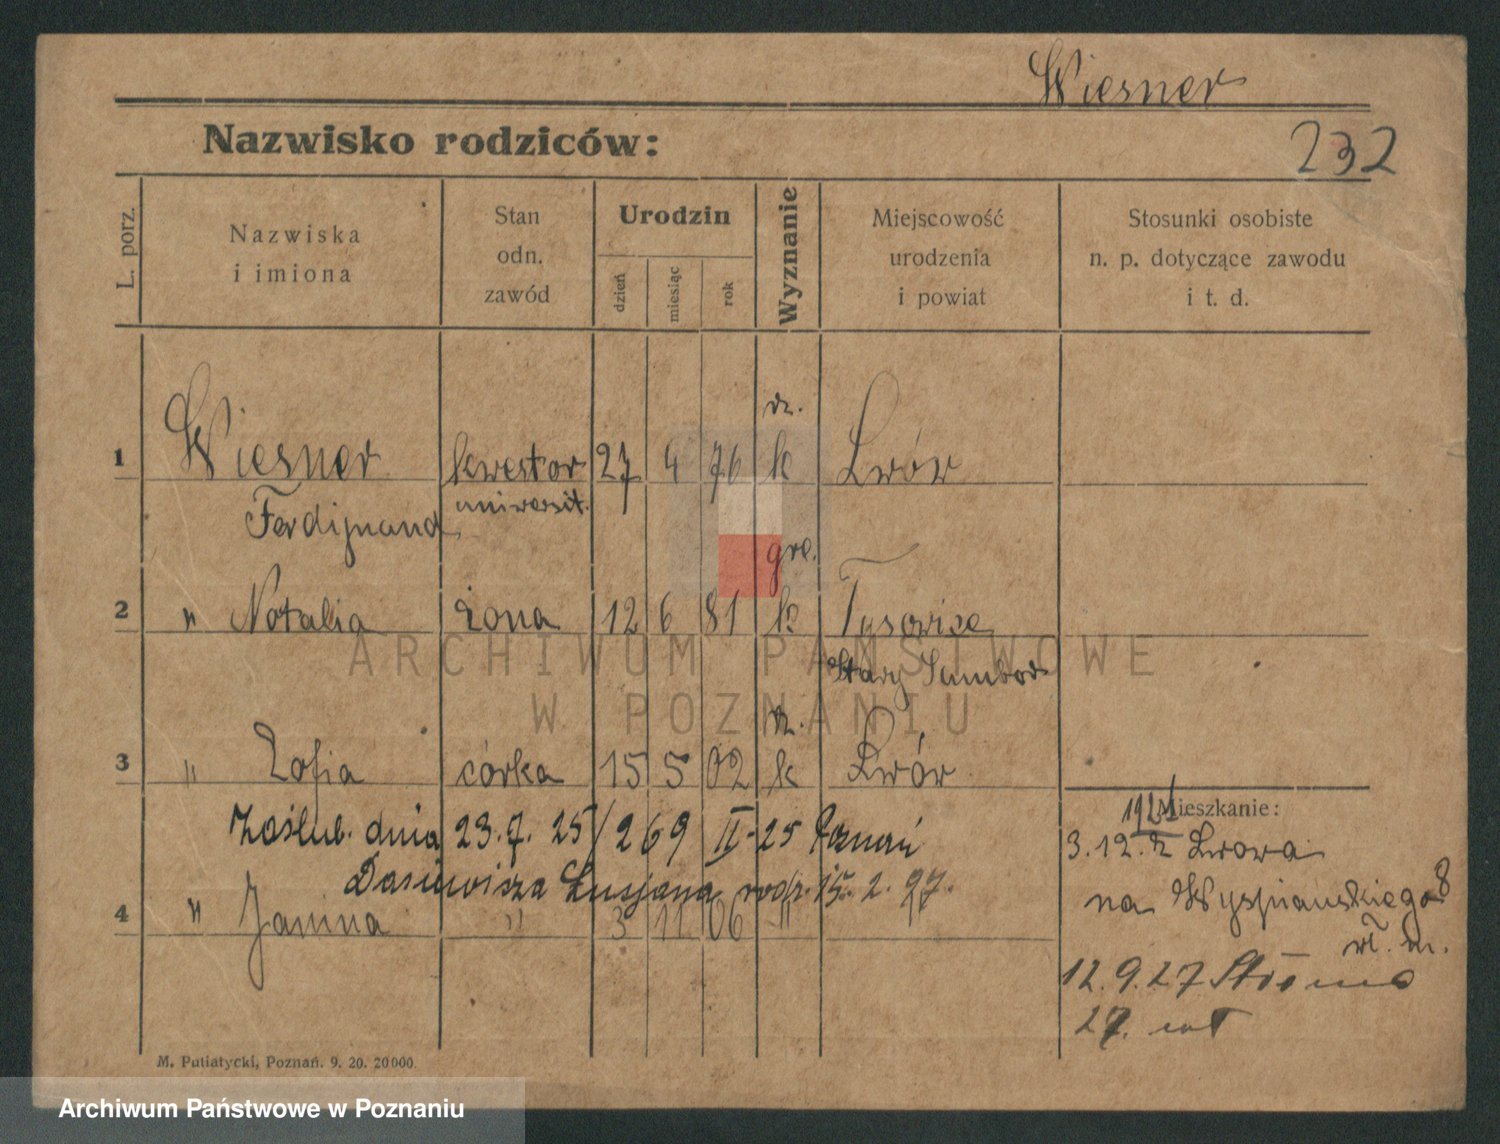 Wiesner
Nazwisko rodziców:
232
L. porz.
Nazwiska
i imiona
Stan
odn.
zawód
Urodzin
dzień
miesiąc
rok
Wyznanie
Miejscowość
urodzenia
i powiat
Stosunki osobiste
n. p. dotyczące zawodu
i t. d.
rz.
1 Wiesner kwestor 27 4 76 k Lwów
Ferdynand uniwersit.
gre.
2 " Natalia żona 12 6 81 k Tysowice
Stary Sambor
rz.
3 " Zofia córka 15 5 02 k Lwów
Mieszkanie:
Zaślub. dnia 23.7.25/269 II-25 Poznań
3.12. Lwowa
Lucjana rodz. 15.2.97.
na Wyspiańskiego 8
4 " Janina " 3 11 06 "
12.9.27
27.
M. Putiatycki, Poznań. 9. 20. 20000.
ARCHIWUM PAŃSTWOWE
W POZNANIU
Archiwum Państwowe w Poznaniu